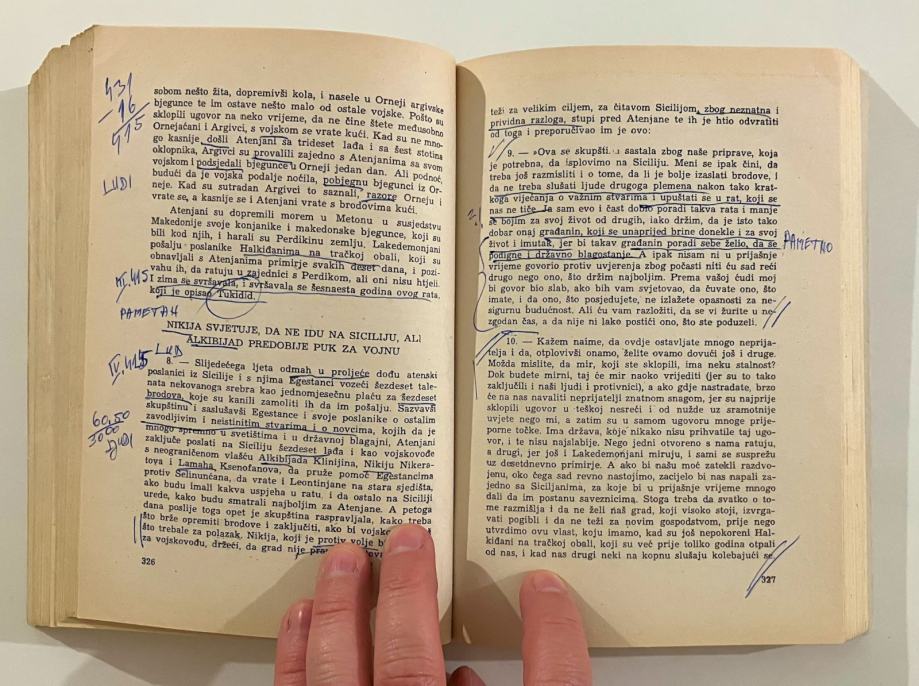 431
- 16
415
LUDI
sobom nešto žita, dopremivši kola, i nasele u Orneji argivske
bjegunce te im ostave nešto malo od ostale vojske. Pošto su
sklopili ugovor na neko vrijeme, da ne čine štete međusobno
Ornejaćani i Argivci, s vojskom se vrate kući. Kad su ne mno-
go kasnije, došli Atenjani sa trideset lađa i sa šest stotina
oklopnika, Argivci su provalili zajedno s Atenjanima sa svom
vojskom i podsjedali bjegunce u Orneji jedan dan. Ali podnoć,
budući da je vojska podalje noćila, pobjegnu bjegunci iz Or-
neje. Kad su sutradan Argivci to saznali, razore Orneju i
vrate se, a kasnije se i Atenjani vrate s brodovima kući.
Atenjani su dopremili morem u Metonu u susjedstvu
Makedonije svoje konjanike i makedonske bjegunce, koji su
bili kod njih, i harali su Perdikinu zemlju. Lakedemonjani
pošalju poslanike Halkiđanima na tračkoj obali, koji su
obnavljali s Atenjanima primirje svakih deset dana, i pozi-
vahu ih, da ratuju u zajednici s Perdikom, ali oni nisu htjeli.
I zima se svršavala, i svršavala se šesnaesta godina ovog rata,
koji je opisao Tukidid.
III. 415
PAMETAN
NIKIJA SVJETUJE, DA NE IDU NA SICILIJU, ALI
ALKIBIJAD PREDOBIJE PUK ZA VOJNU
LUD
IV. 415
8. — Slijedećega ljeta odmah u proljeće dođu atenski
poslanici iz Sicilije i s njima Egestanci vozeći šezdeset tale-
nata nekovanoga srebra kao jednomjesečnu plaću za šezdeset
brodova, koje su kanili zamoliti ih da im pošalju. Sazvavši
skupštinu i saslušavši Egestance i svoje poslanike o ostalim
zavodljivim i neistinitim stvarima i o novcima, kojih da je
mnogo spremno u svetištima i u državnoj blagajni, Atenjani
zaključe poslati na Siciliju šezdeset lađa i kao vojskovođe
s neograničenom vlašću Alkibijada Klinijina, Nikiju Nikera-
tova i Lamaha Ksenofanova, da pruže pomoć Egestancima
protiv Selinunćana, da vrate i Leontinjane na stara sjedišta,
ako budu imali kakva uspjeha u ratu, i da ostalo na Siciliji
urede, kako budu smatrali najboljim za Atenjane. A petoga
dana poslije toga opet je skupština raspravljala, kako treba
što brže opremiti brodove i zaključiti, ako bi vojsko
što trebale za polazak, Nikija, koji je protiv volje b
za vojskovođu, držeći, da grad nije
60,50
3000
LJUDI
326
teži za velikim ciljem, za čitavom Sicilijom, zbog neznatna i
prividna razloga, stupi pred Atenjane te ih je htio odvratiti
od toga i preporučivao im je ovo:
9. — »Ova se skupšti sastala zbog naše priprave, koja
je potrebna, da isplovimo na Siciliju. Meni se ipak čini, da
treba još razmisliti i o tome, da li je bolje izaslati brodove, i
da ne treba slušati ljude drugoga plemena nakon tako krat-
koga vijećanja o važnim stvarima i upuštati se u rat, koji se
nas ne tiče. Ja sam evo i čast dobio poradi takva rata i manje
se bojim za svoj život od drugih, iako držim, da je isto tako
dobar onaj građanin, koji se unaprijed brine donekle i za svoj
život i imutak, jer bi takav građanin poradi sebe želio, da se
podigne i državno blagostanje. A ipak nisam ni u prijašnje
vrijeme govorio protiv uvjerenja zbog počasti niti ću sad reći
drugo nego ono, što držim najboljim. Prema vašoj ćudi moj
bi govor bio slab, ako bih vam svjetovao, da čuvate ono, što
imate, i da ono, što posjedujete, ne izlažete opasnosti za ne-
sigurnu budućnost. Ali ću vam razložiti, da se vi žurite u ne-
zgodan čas, a da nije ni lako postići ono, što ste poduzeli.
PAMETNO
10. — Kažem naime, da ovdje ostavljate mnogo neprija-
telja i da, otplovivši onamo, želite ovamo dovući još i druge.
Možda mislite, da mir, koji ste sklopili, ima neku stalnost?
Dok budete mirni, taj će mir naoko vrijediti (jer su to tako
zaključili i naši ljudi i protivnici), a ako gdje nastradate, brzo
će na nas navaliti neprijatelji znatnom snagom, jer su najprije
sklopili ugovor u teškoj nesreći i od nužde uz sramotnije
uvjete nego mi, a zatim su u samom ugovoru mnoge prije-
porne točke. Ima država, koje nikako nisu prihvatile taj ugo-
vor, i te nisu najslabije. Nego jedni otvoreno s nama ratuju,
a drugi, jer još i Lakedemonjani miruju, i sami se suspežu
uz desetdnevno primirje. A ako bi našu moć zatekli razdvo-
jenu, oko čega sad revno nastojimo, zacijelo bi nas napali za-
jedno sa Sicilijanima, za koje bi u prijašnje vrijeme mnogo
dali da im postanu saveznicima. Stoga treba da svatko o to-
me razmišlja i da ne želi naš grad, koji visoko stoji, izvrga-
vati pogibli i da ne teži za novim gospodstvom, prije nego
utvrdimo ovu vlast, koju imamo, kad su još nepokoreni Hal-
kiđani na tračkoj obali, koji su već prije toliko godina otpali
od nas, i kad nas drugi neki na kopnu slušaju kolebajući se.
327